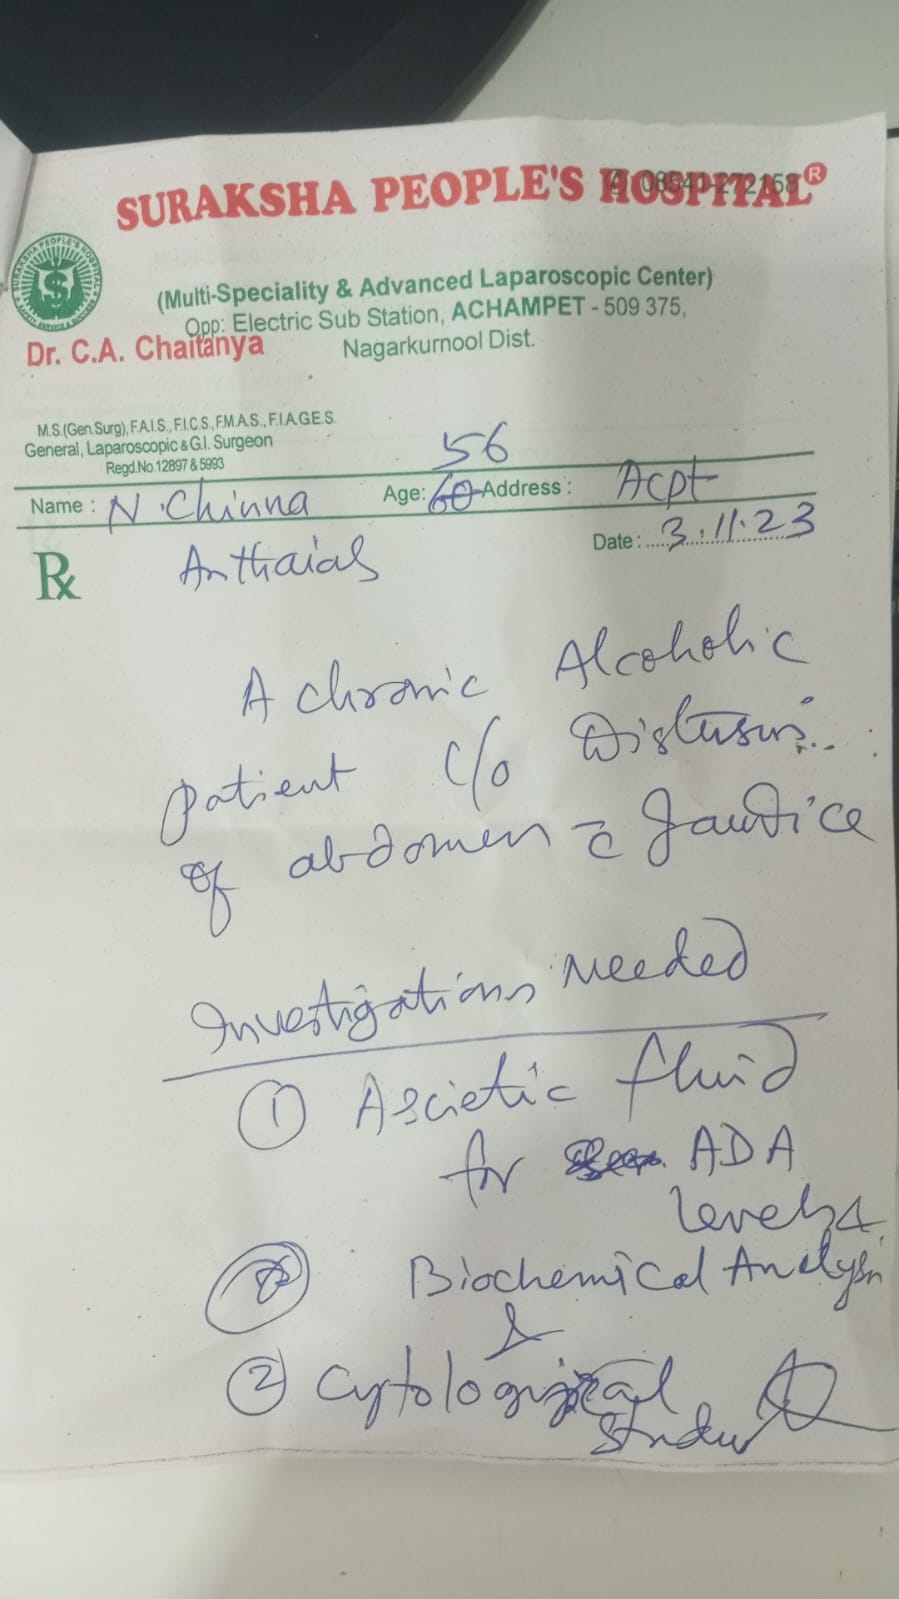 SURAKSHA PEOPLE'S HOSPITAL®
08540-272158
(Multi-Speciality & Advanced Laparoscopic Center)
Opp: Electric Sub Station, ACHAMPET - 509 375,
Nagarkurnool Dist.
Dr. C.A. Chaitanya
M.S.(Gen.Surg), F.A.I.S., F.I.C.S., F.M.A.S., F.I.A.G.E.S.
General, Laparoscopic & G.I. Surgeon
Regd.No.12897 & 5993
56
Name : N. Chinna Age: 60 Address : Acpt
Anthaiah Date : 3.11.23
Rx
A chronic Alcoholic
patient c/o
of abdomen c̄ Jaundice
Investigations Needed
① Ascietic fluid
for ADA
levels &
Biochemical Analysis
&
② Cytological